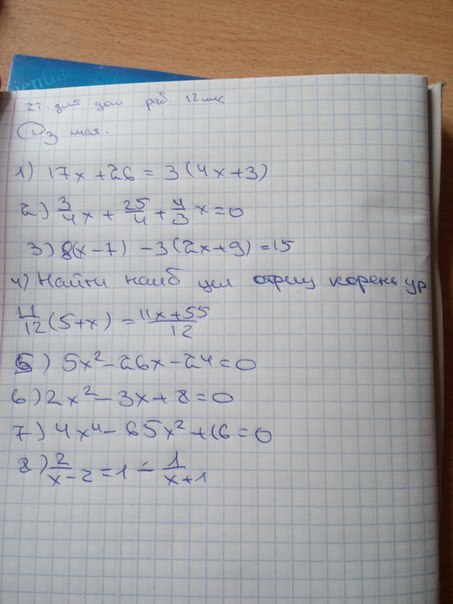 для дом раб.
3 мая.
1) 17x + 26 = 3(4x+3)
2) 3/4 x + 25/4 + 4/3 x = 0
3) 8(x-7) - 3(2x+9) = 15
4) Найти наиб цел отриц корень ур
11/12 (5+x) = 11x+55/12
5) 5x² - 26x - 24 = 0
6) 2x² - 3x + 8 = 0
7) 4x⁴ - 65x² + 16 = 0
8) 2/x-2 = 1 - 1/x+1